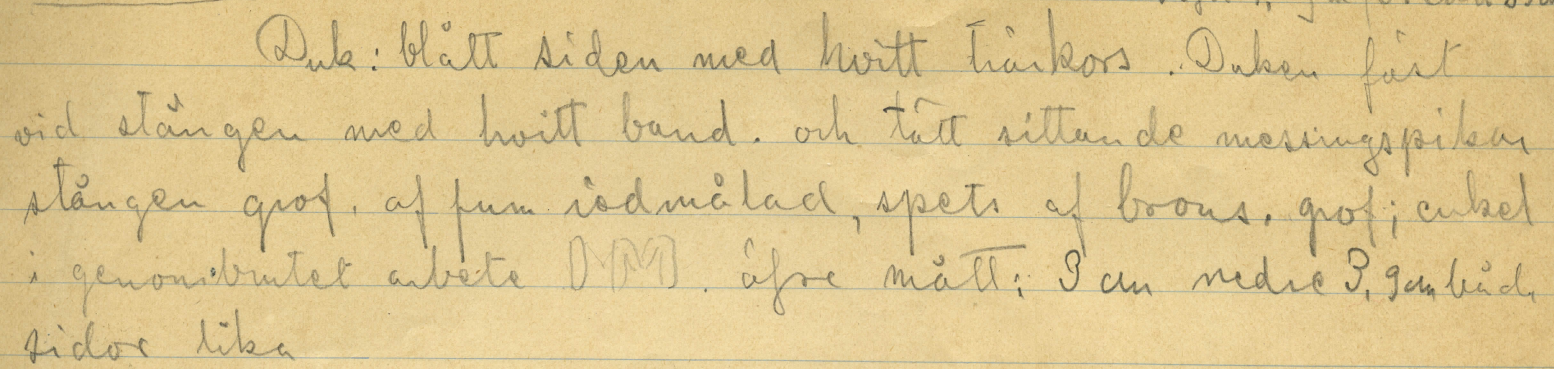 Duk: blått siden med hvitt tvärkors. Duken fäst
vid stången med hvitt band. och tätt sittande messingspikar
stången grof. af furu rödmålad, spets af brons. grof; enkel
i genombrutet arbete MM. öfre mått; 3 cm nedre 3,9 cm båda
sidor lika